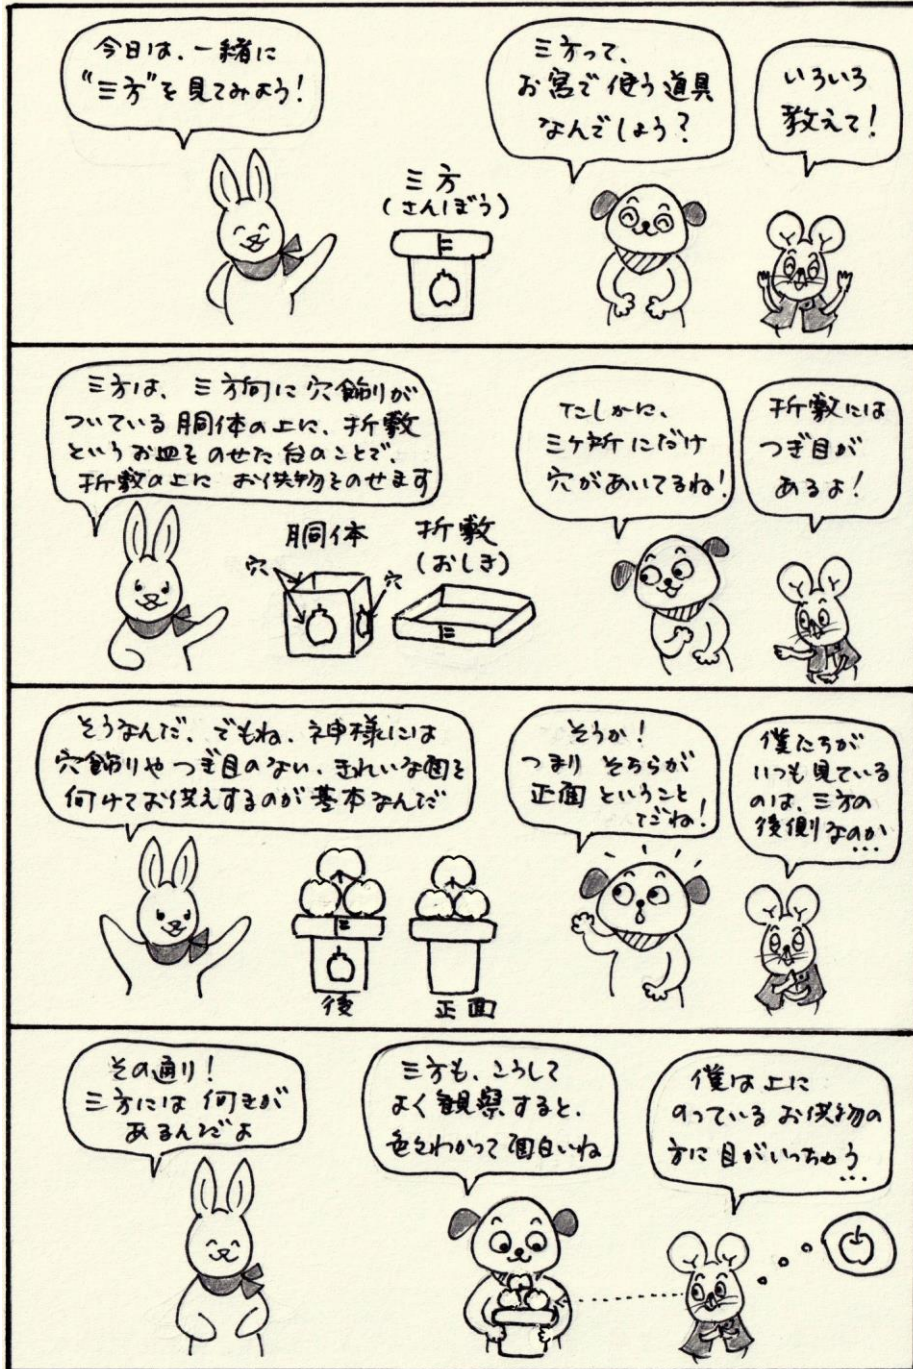 今日は、一緒に
"三方"を見てみよう!
三方
(さんぼう)
三方って、
お宮で使う道具
なんでしょう?
いろいろ
教えて!
三方は、三方向に穴飾りが
ついている胴体の上に、折敷
というお皿をのせた台のことで
折敷の上にお供物をのせます
胴体
穴
穴
折敷
(おしき)
たしかに、
三ヶ所にだけ
穴があいてるね!
折敷には
つぎ目が
あるよ!
そうなんだ、でもね、神様には
穴飾りやつぎ目のない、きれいな面を
向けてお供えするのが基本なんだ
後
正面
そうか!
つまりそちらが
正面ということ
だね!
僕たちが
いつも見ている
のは、三方の
後側なのか
…
その通り!
三方には向きが
あるんだよ
三方も、こうして
よく観察すると、
色々わかって面白いね
僕は上に
のっているお供物の
方に目がいっちゃう
…